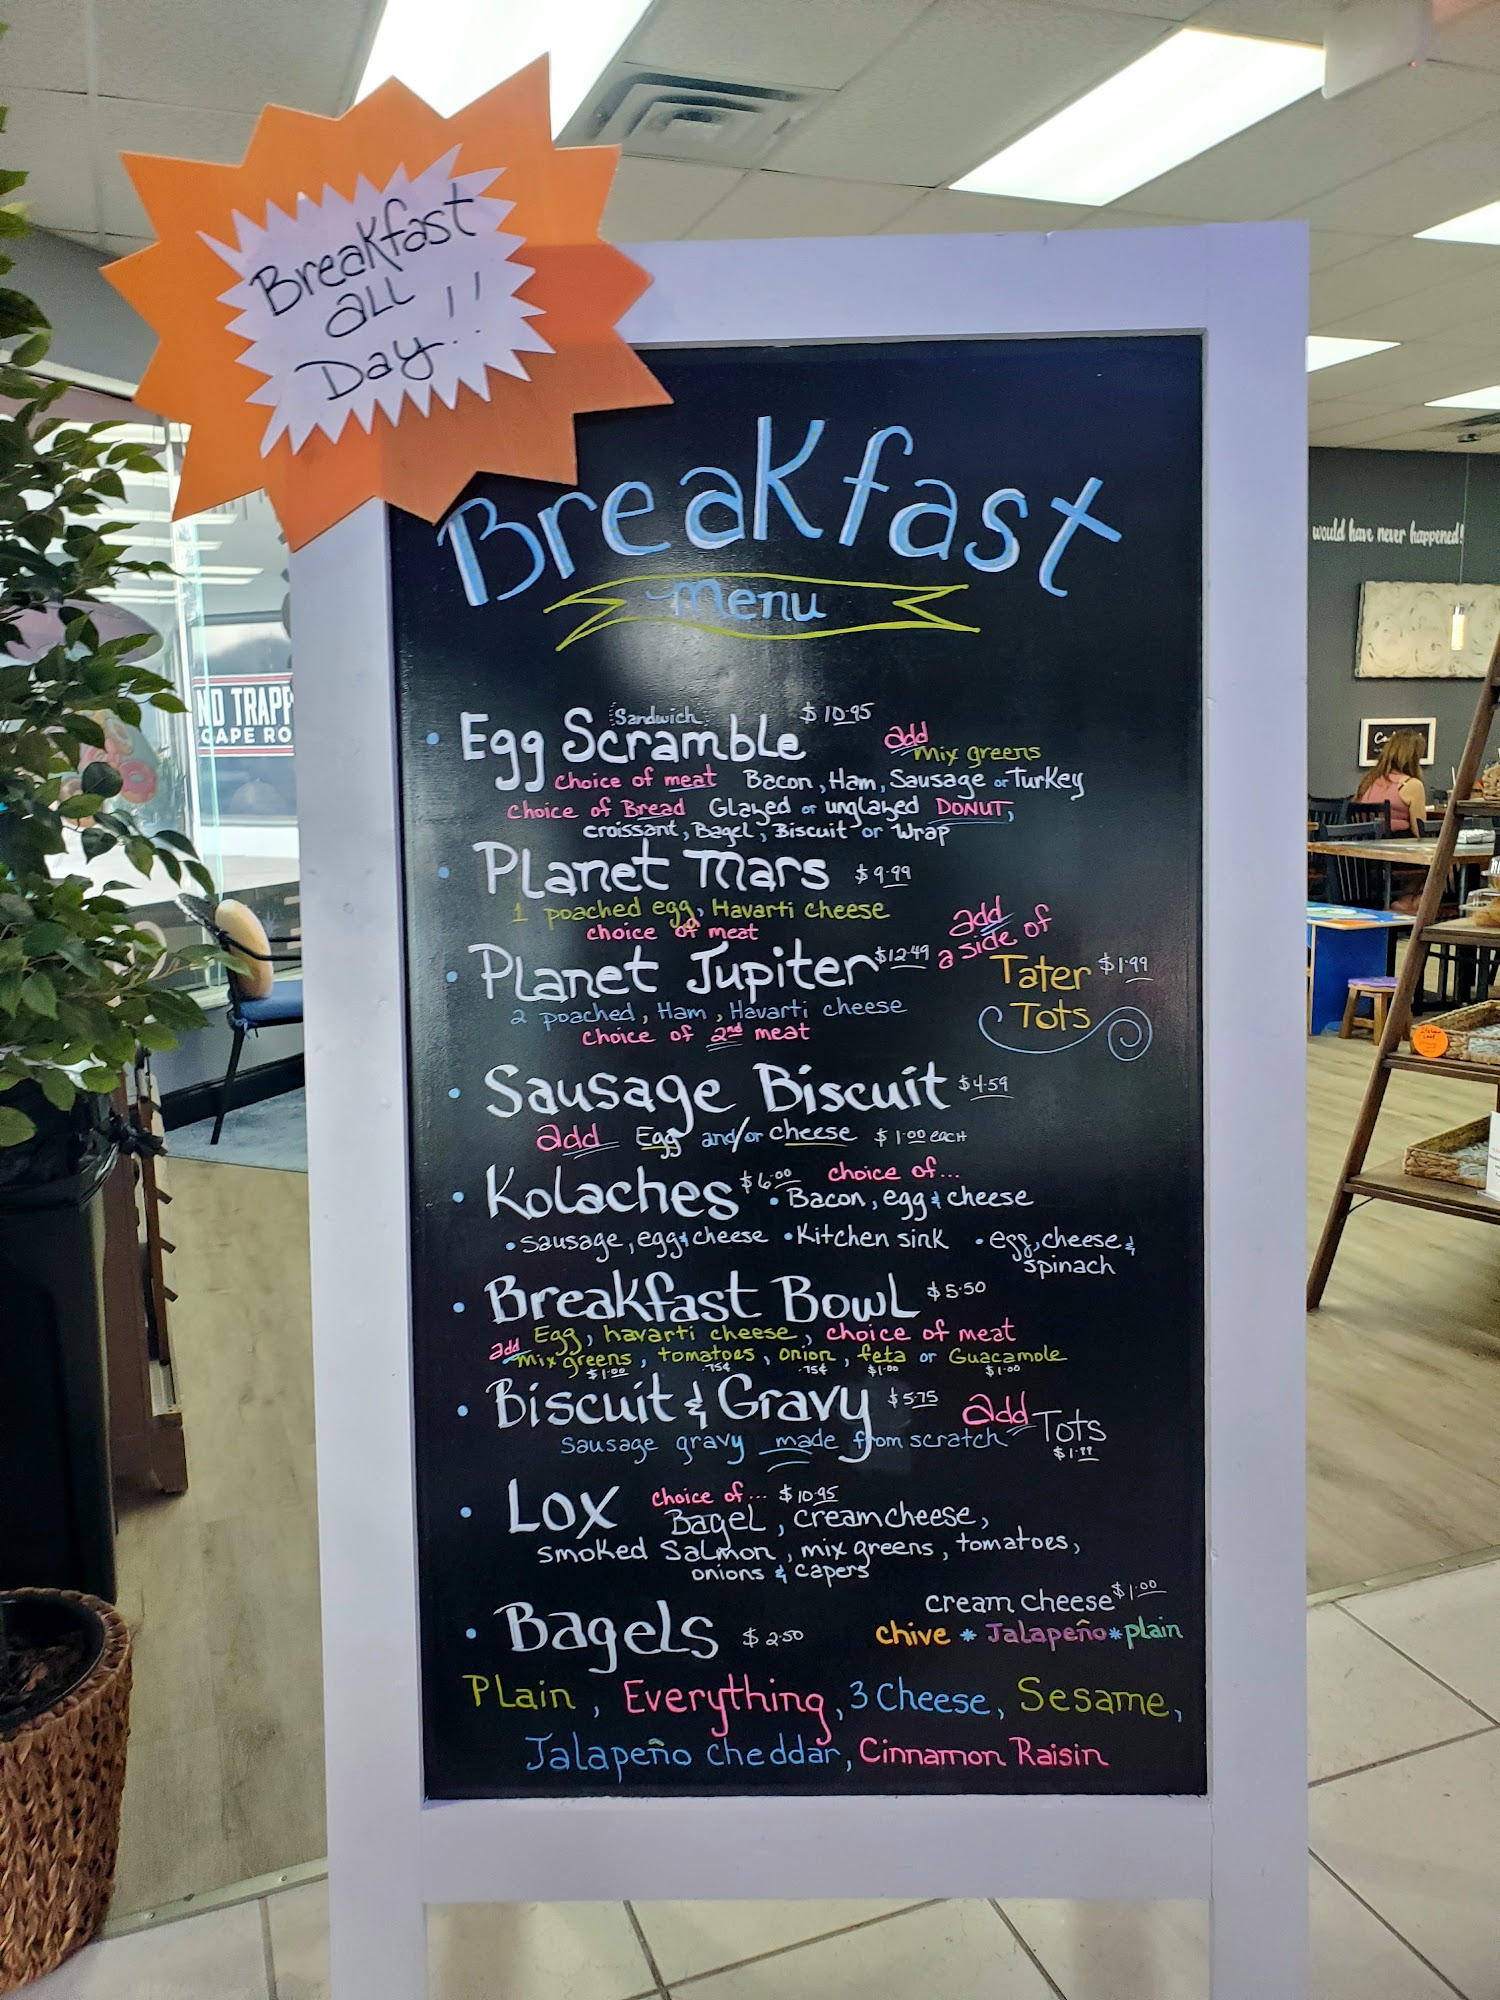 Breakfast
all
Day!!
Breakfast
menu
would have never happened!
ND TRAPP
CAPE RO
• Egg Scramble Sandwich $10.95
add mix greens
choice of meat Bacon, Ham, Sausage or Turkey
choice of Bread Glazed or unglazed DONUT,
croissant, Bagel, Biscuit or Wrap
• Planet Mars $9.99
1 poached egg, Havarti cheese
choice of meat
• Planet Jupiter $12.49
2 poached, Ham, Havarti cheese
choice of 2nd meat
add
a side of
Tater $1.99
Tots
• Sausage Biscuit $4.59
add Egg and/or cheese $1.00 each
• Kolaches $6.00 choice of...
• Bacon, egg & cheese
• Sausage, egg & cheese • Kitchen sink • egg, cheese &
spinach
• Breakfast Bowl $5.50
Egg, havarti cheese, choice of meat
add mix greens, tomatoes, onion, feta or Guacamole
$1.00 .75¢ .75¢ $1.00 $1.00
• Biscuit & Gravy $5.75
sausage gravy made from scratch
add Tots
$1.99
• Lox choice of... $10.95
Bagel, cream cheese,
smoked Salmon, mix greens, tomatoes,
onions & capers
• Bagels $2.50
cream cheese $1.00
chive * Jalapeño * plain
Plain, Everything, 3 Cheese, Sesame,
Jalapeño cheddar, Cinnamon Raisin